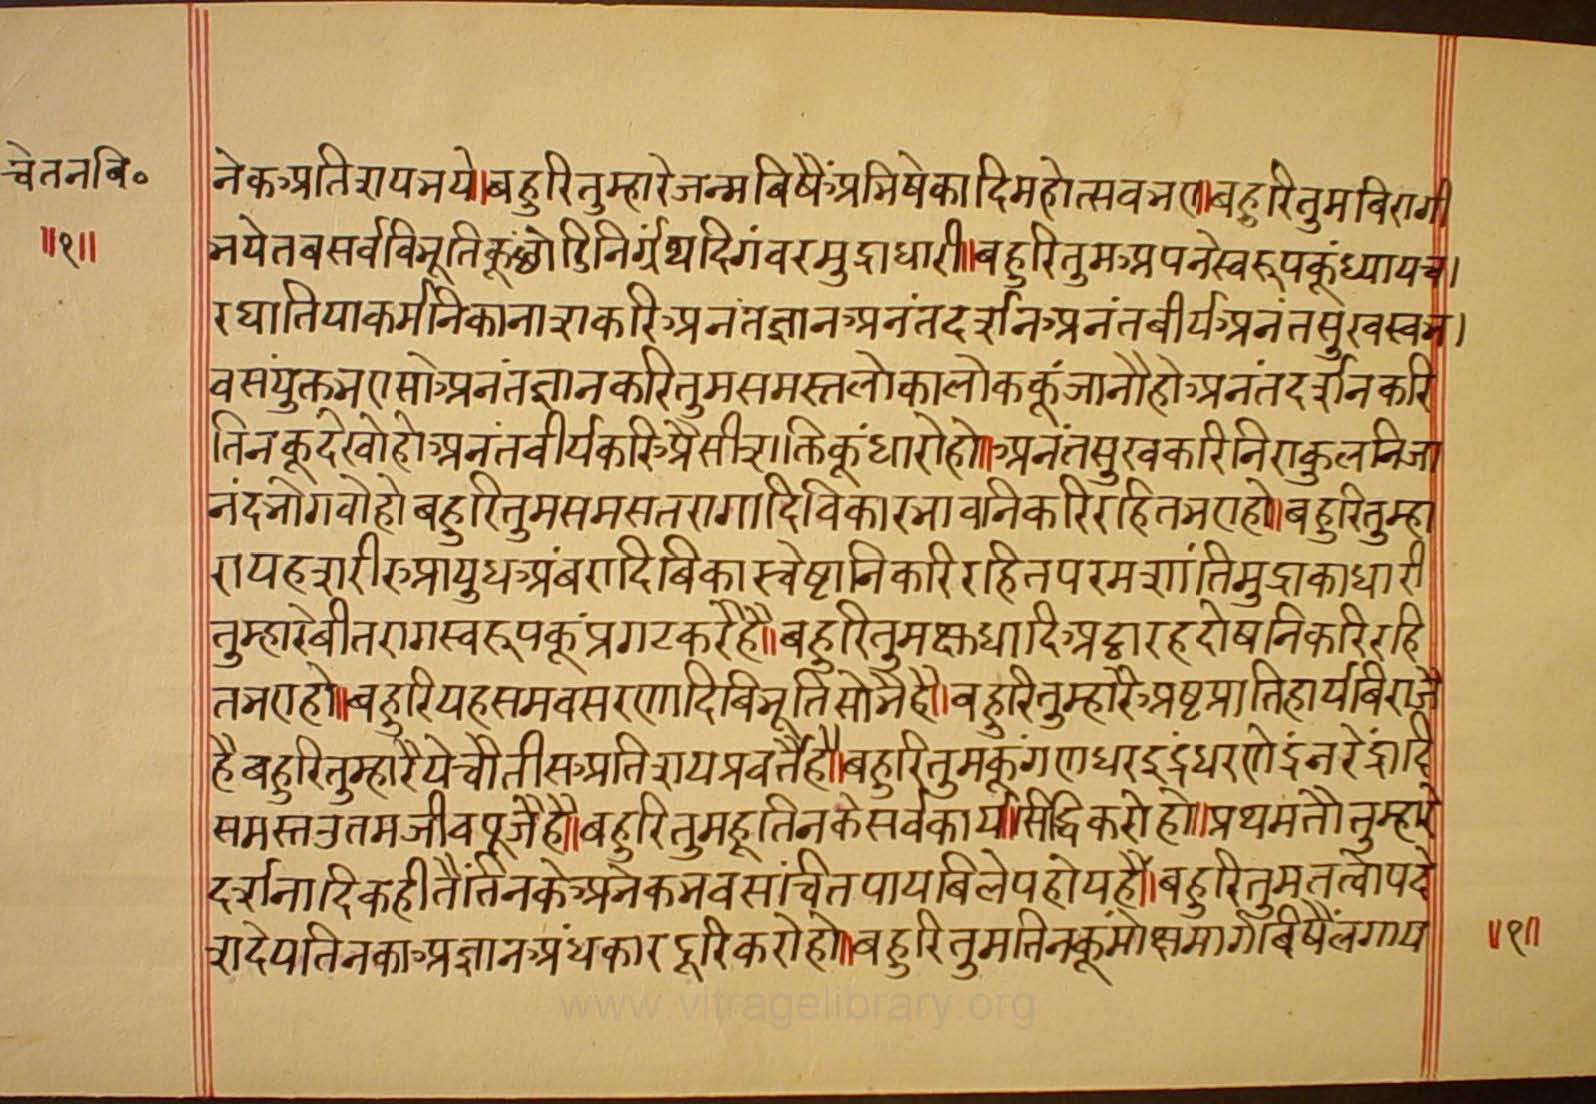 चेतनवि०
॥१॥
नेकअतिशयभये॥बहुरितुम्हारेजन्मबिषैंअभिषेकादिमहोत्सवभए॥बहुरितुमबिरागी
भयेतबसर्वविभूतिकूंछोडिनिर्ग्रंथदिगंवरमुद्राधारी॥बहुरितुमअपनेस्वरूपकूंध्यायच।
रघातियाकर्मनिकानाशकरिअनंतज्ञानअनंतदर्शनअनंतबीर्यअनंतसुखस्वभ।
वसंयुक्तभएसोअनंतज्ञानकरितुमसमस्तलोकालोककूंजानौहोअनंतदर्शनकरि
तिनकूदेखोहोअनंतवीर्यकरिअैसीशक्तिकूंधारोहो॥अनंतसुखकरिनिराकुलनिजा
नंदभोगवोहोबहुरितुमसमसतरागादिविकारभावनिकरिरहितभएहो॥बहुरितुम्हा
रायहशरीरुआयुधअंबरादिबिकास्चेष्टानिकरिरहितपरमशांतिमुद्राकाधारी
तुम्हारेबीतरागस्वरूपकूंप्रगटकरैहै॥बहुरितुमक्षधादिअठ्ठारहदोषनिकरिरहि
तभएहो॥बहुरियहसमवसरणादिबिभूतिसोभैहै॥बहुरितुम्हारैअष्टप्रातिहार्यबिराजै
हैबहुरितुम्हारैयेचौतीसअतिशयप्रवर्तैहै॥बहुरितुमकूंगणधरइद्रंधरणेद्रंनरेद्रांदि
समस्तउतमजीवपूजैहै॥बहुरितुमहूतिनकेसर्वकार्यसिद्धिकरोहो॥प्रथमतौतुम्हारे
दर्शनादिकहीतैंतिनकेअनेकभवसांचितपायबिलेपहोयहै॥बहुरितुमतत्वोपदे
शदेयतिनकाअज्ञानअंधकारदूरिकरोहो॥बहुरितुमतिनकूंमोक्षमार्गबिषैंलगाय
॥१॥
www.vitragelibrary.org